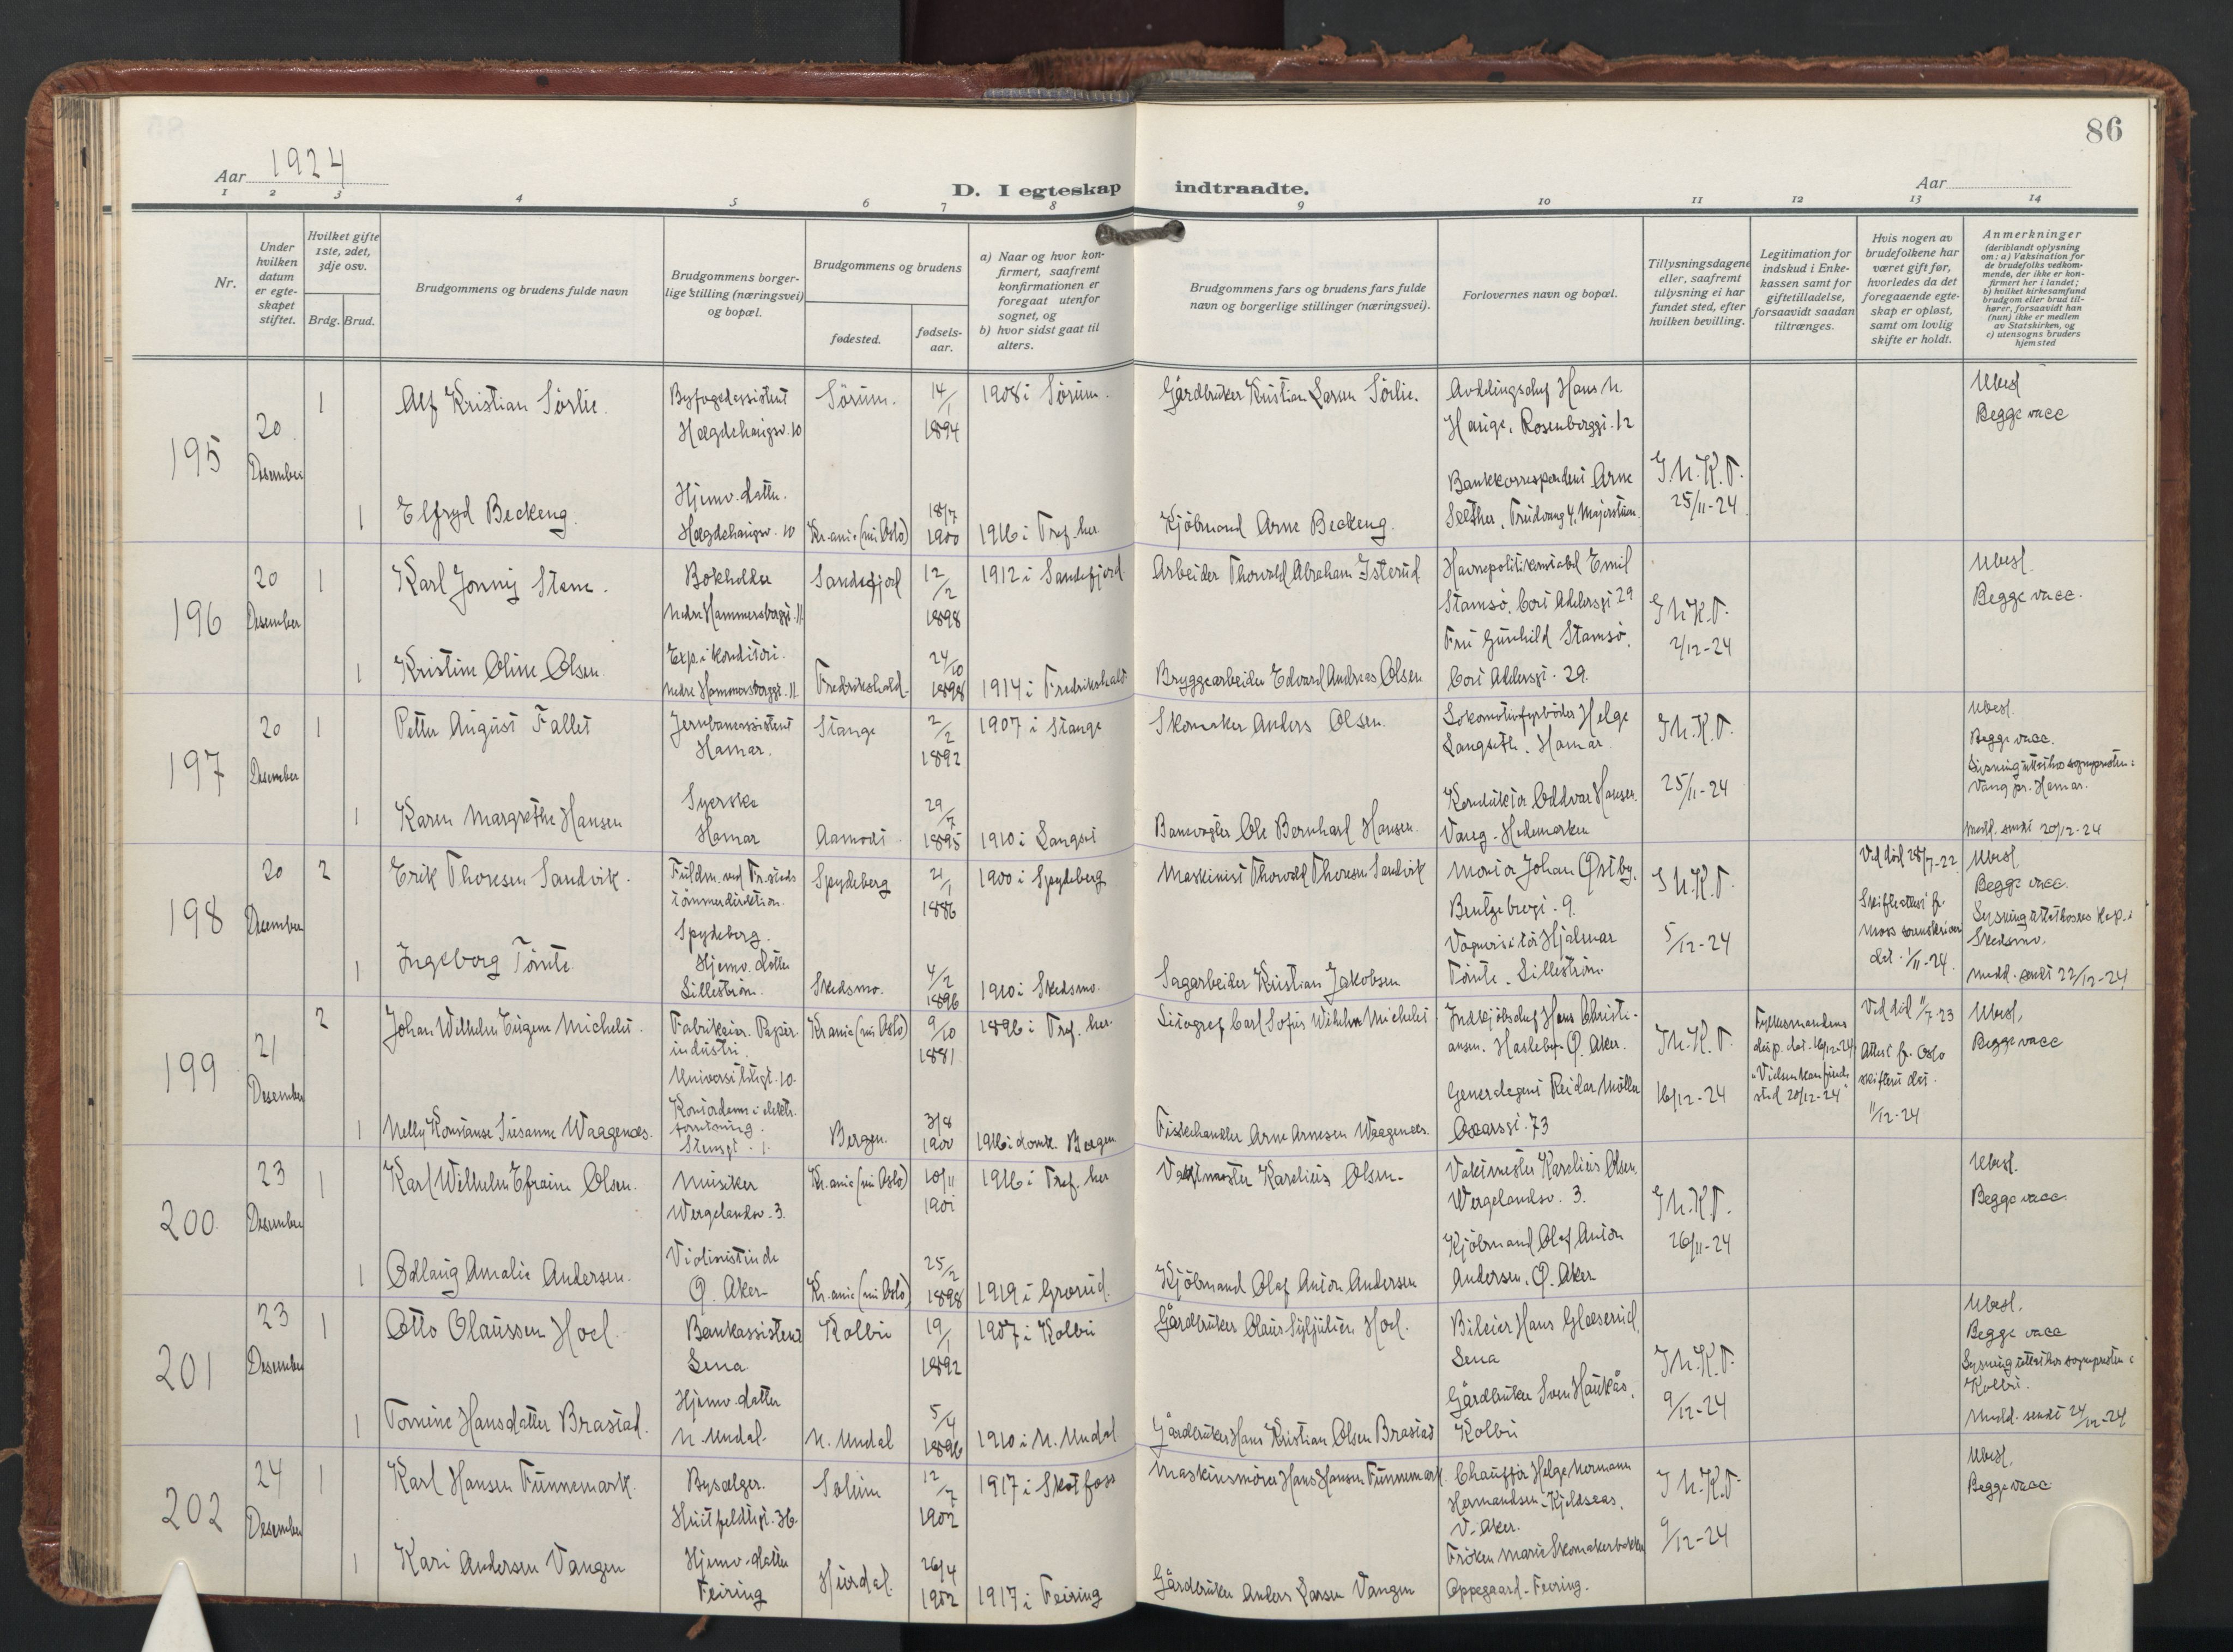 86
Aar 1924
D. I egteskap indtraadte.
Aar
1 2 3 4 5 6 7 8 9 10 11 12 13 14
Nr.
Under hvilken datum er egteskapet stiftet.
Hvilket gifte 1ste, 2det, 3dje osv.
Brdg. Brud.
Brudgommens og brudens fulde navn
Brudgommens borgerlige stilling (næringsvei) og bopæl.
Brudgommens og brudens
fødested.
fødselsaar.
a) Naar og hvor konfirmert, saafremt konfirmationen er foregaat utenfor sognet, og
b) hvor sidst gaat til alters.
Brudgommens fars og brudens fars fulde navn og borgerlige stillinger (næringsvei).
Forlovernes navn og bopæl.
Tillysningsdagene eller, saafremt tillysning ei har fundet sted, efter hvilken bevilling.
Legitimation for indskud i Enkekassen samt for giftetilladelse, forsaavidt saadan tiltrænges.
Hvis nogen av brudefolkene har været gift før, hvorledes da det foregaaende egteskap er opløst, samt om lovlig skifte er holdt.
Anmerkninger
(deriblandt oplysning om: a) Vaksination for de brudefolks vedkommende, der ikke er konfirmert her i landet; b) hvilket kirkesamfund brudgom eller brud tilhører, forsaavidt han (hun) ikke er medlem av Statskirken, og c) utensogns bruders hjemsted
195
20 Desember
1
Alf Kristian Sørlie.
Byfogedassistent
Hægdehaugsv. 10
Sørum.
14/1 1894
1908 i Sørum.
Gårdbruker Kristian Larsen Sørlie.
Avdelingschef Hans N.
Hauge, Rosenborggt. 12
Ubesl
Begge vacc
1
Elfryd Beckeng.
Hjemv. datter.
Hægdehaugsv. 10
Kr.ania (nu Oslo)
18/7 1900
1916 i Tref. her.
Kjøbmand Arne Beckeng.
Bankkorrespondent Arne
Sæther, Trudvang 4, Majorstuen.
I.N.K.T.
25/11-24
196
20 Desember
1
Karl Jonny Stene.
Bokholder
Nedre Hammersborggt. 11
Sandefjord
12/2 1898
1912 i Sandefjord
Arbeider Thorvald Abraham Isterud
Havnepolitikonstabel Emil
Stamsø, Cort Adelersgt 29
I.N.K.T.
2/12-24
Ubesl.
Begge vacc.
1
Kristine Oline Olsen.
Exp. i konditori.
Nedre Hammersborggt. 11.
Fredrikshald.
24/10 1898
1914 i Fredrikshald.
Bryggearbeider Edvard Andreas Olsen
Fru Gunhild Stamsø,
Cort Adelersgt. 29.
197
20 Desember
1
Petter August Fallet
Jernbaneassistent
Hamar.
Stange
2/2 1892
1907 i Stange
Skomaker Anders Olsen.
Lokomotivfyrbøder Helge
Langseth. Hamar.
I.N.K.T.
25/11-24
Ubesl.
Begge vacc.
Lysning attest hos sognepresten i
Vang pr. Hamar.
Medd. sendt 20/12-24
1
Karen Margrethe Hansen
Syerske
Hamar
Aamodt.
29/7 1895
1910 i Langset
Banevogter Ole Bernhard Hansen.
Konduktør Oddvar Hansen.
Vang - Hedemarken
198
20 Desember
2
Erik Thoresen Sandvik.
Fuldm. ved Fr.stads
tømmerdirektion.
Spydeberg.
Spydeberg
21/1 1886
1900 i Spydeberg
Maskinist Thorvald Thoresen Sandvik
Montør Johan Østby.
Bentzebrogt. 9.
I.N.K.T.
5/12-24
Ved død 28/7-22
Skifteattest fr.
Moss sorenskriveri
dat. 1/11-24.
Ubesl
Begge vacc.
Lysning attest hos res kap. i
Skedsmo.
Medd. sendt 22/12-24
1
Ingeborg Tomte.
Hjemv. datter
Lillestrøm.
Skedsmo.
4/2 1896
1910 i Skedsmo.
Sagarbeider Kristian Jakobsen
Vognvisitør Hjalmar
Tomte. Lillestrøm.
199
21 Desember
2
Johan Wilhelm Eugene Michelet.
Fabrikeier. Papir-
industri.
Universitetsgt. 10.
Kr.ania (nu Oslo)
9/10 1881
1896 i Tref. her.
Litograf Carl Sofus Wilhelm Michelet.
Indkjøbschef Hans Christi-
ansen. Hasleby. Ø. Aker.
I.N.K.T.
16/12-24
Fylkesmandens
disp. dat. 16/12-24
"Vielsen kan finde
sted 20/12-24"
Ved død 11/7-23
Attest fr. Oslo
skifteret dat.
11/12-24
Ubesl,
Begge vacc
1
Nelly Konstanse Susanne Waagenæs.
Kontordame i elektr.
forretning.
Stensgt. 1.
Bergen.
3/8 1900
1916 i domk. Bergen
Fiskehandler Arne Arnesen Waagenæs.
Generalagent Reidar Møller
Oscarsgt. 73
200
23 Desember
1
Karl Wilhelm Efraim Olsen.
Musiker
Wergelandsv. 3.
Kr.ania (nu Oslo)
10/11 1901
1916 i Tref. her
Vaktmester Karelius Olsen.
Vaktmester Karelius Olsen.
Wergelandsv. 3.
I.N.K.T.
26/11-24
Ubesl.
Begge vacc.
1
Odlaug Amalie Andersen.
Violinistinde
Ø. Aker
Kr.ania (nu Oslo)
25/2 1898
1919 i Grorud.
Kjøbmand Olaf Anton Andersen
Kjøbmand Olaf Anton
Andersen. Ø. Aker
201
23 Desember
1
Otto Olaussen Hoel.
Bankassistent
Lena.
Kolbu
19/1 1892
1907 i Kolbu
Gårdbruker Olaus Syljulien Hoel.
Bileier Hans Glæserud,
Lena
I.N.K.T.
9/12-24
Ubesl.
Begge vacc
Lysning attest hos sognepresten i
Kolbu.
Medd. sendt 24/12-24
1
Tomine Hansdatter Brastad.
Hjemv. datter
N. Undal.
N. Undal
5/4 1896
1910 i N. Undal
Gårdbruker Hans Kristian Olsen Brastad
Gårdbruker Sven Haukås,
Kolbu
202
24 Desember
1
Karl Hansen Funnemark.
Bysælger.
Huitfeldtsgt. 36.
Solum
12/7 1902
1917 i Skotfoss
Maskinsmører Hans Hansen Funnemark.
Chauffør Helge Normann
Hermandsen. Kjeldsaas,
V. Aker.
I.N.K.T.
9/12-24
Ubesl.
Begge vacc
1
Kari Andersen Vangen
Hjemv. datter
Feiring
Hurdal.
26/4 1902
1917 i Feiring
Gårdbruker Anders Larsen Vangen
Frøken Marie Skomakerbakken
Oppegaard - Feiring.